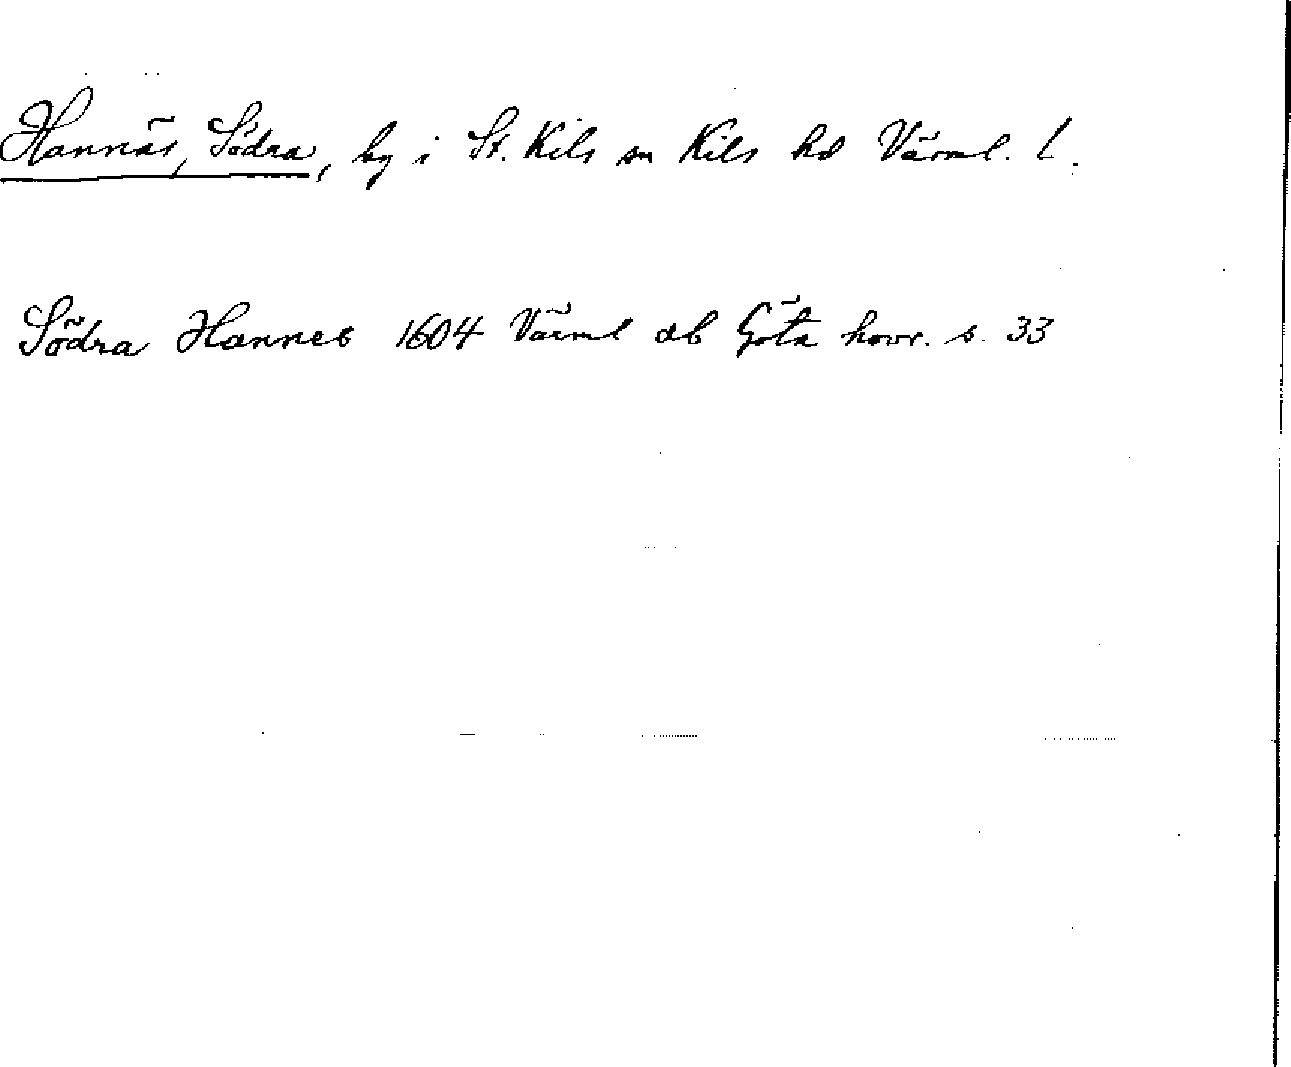 Hannäs, Södra, by i St. Kils sn Kils hd Värml. l.
Södra Hannes 1604 Värml db Göta hovr. s. 33